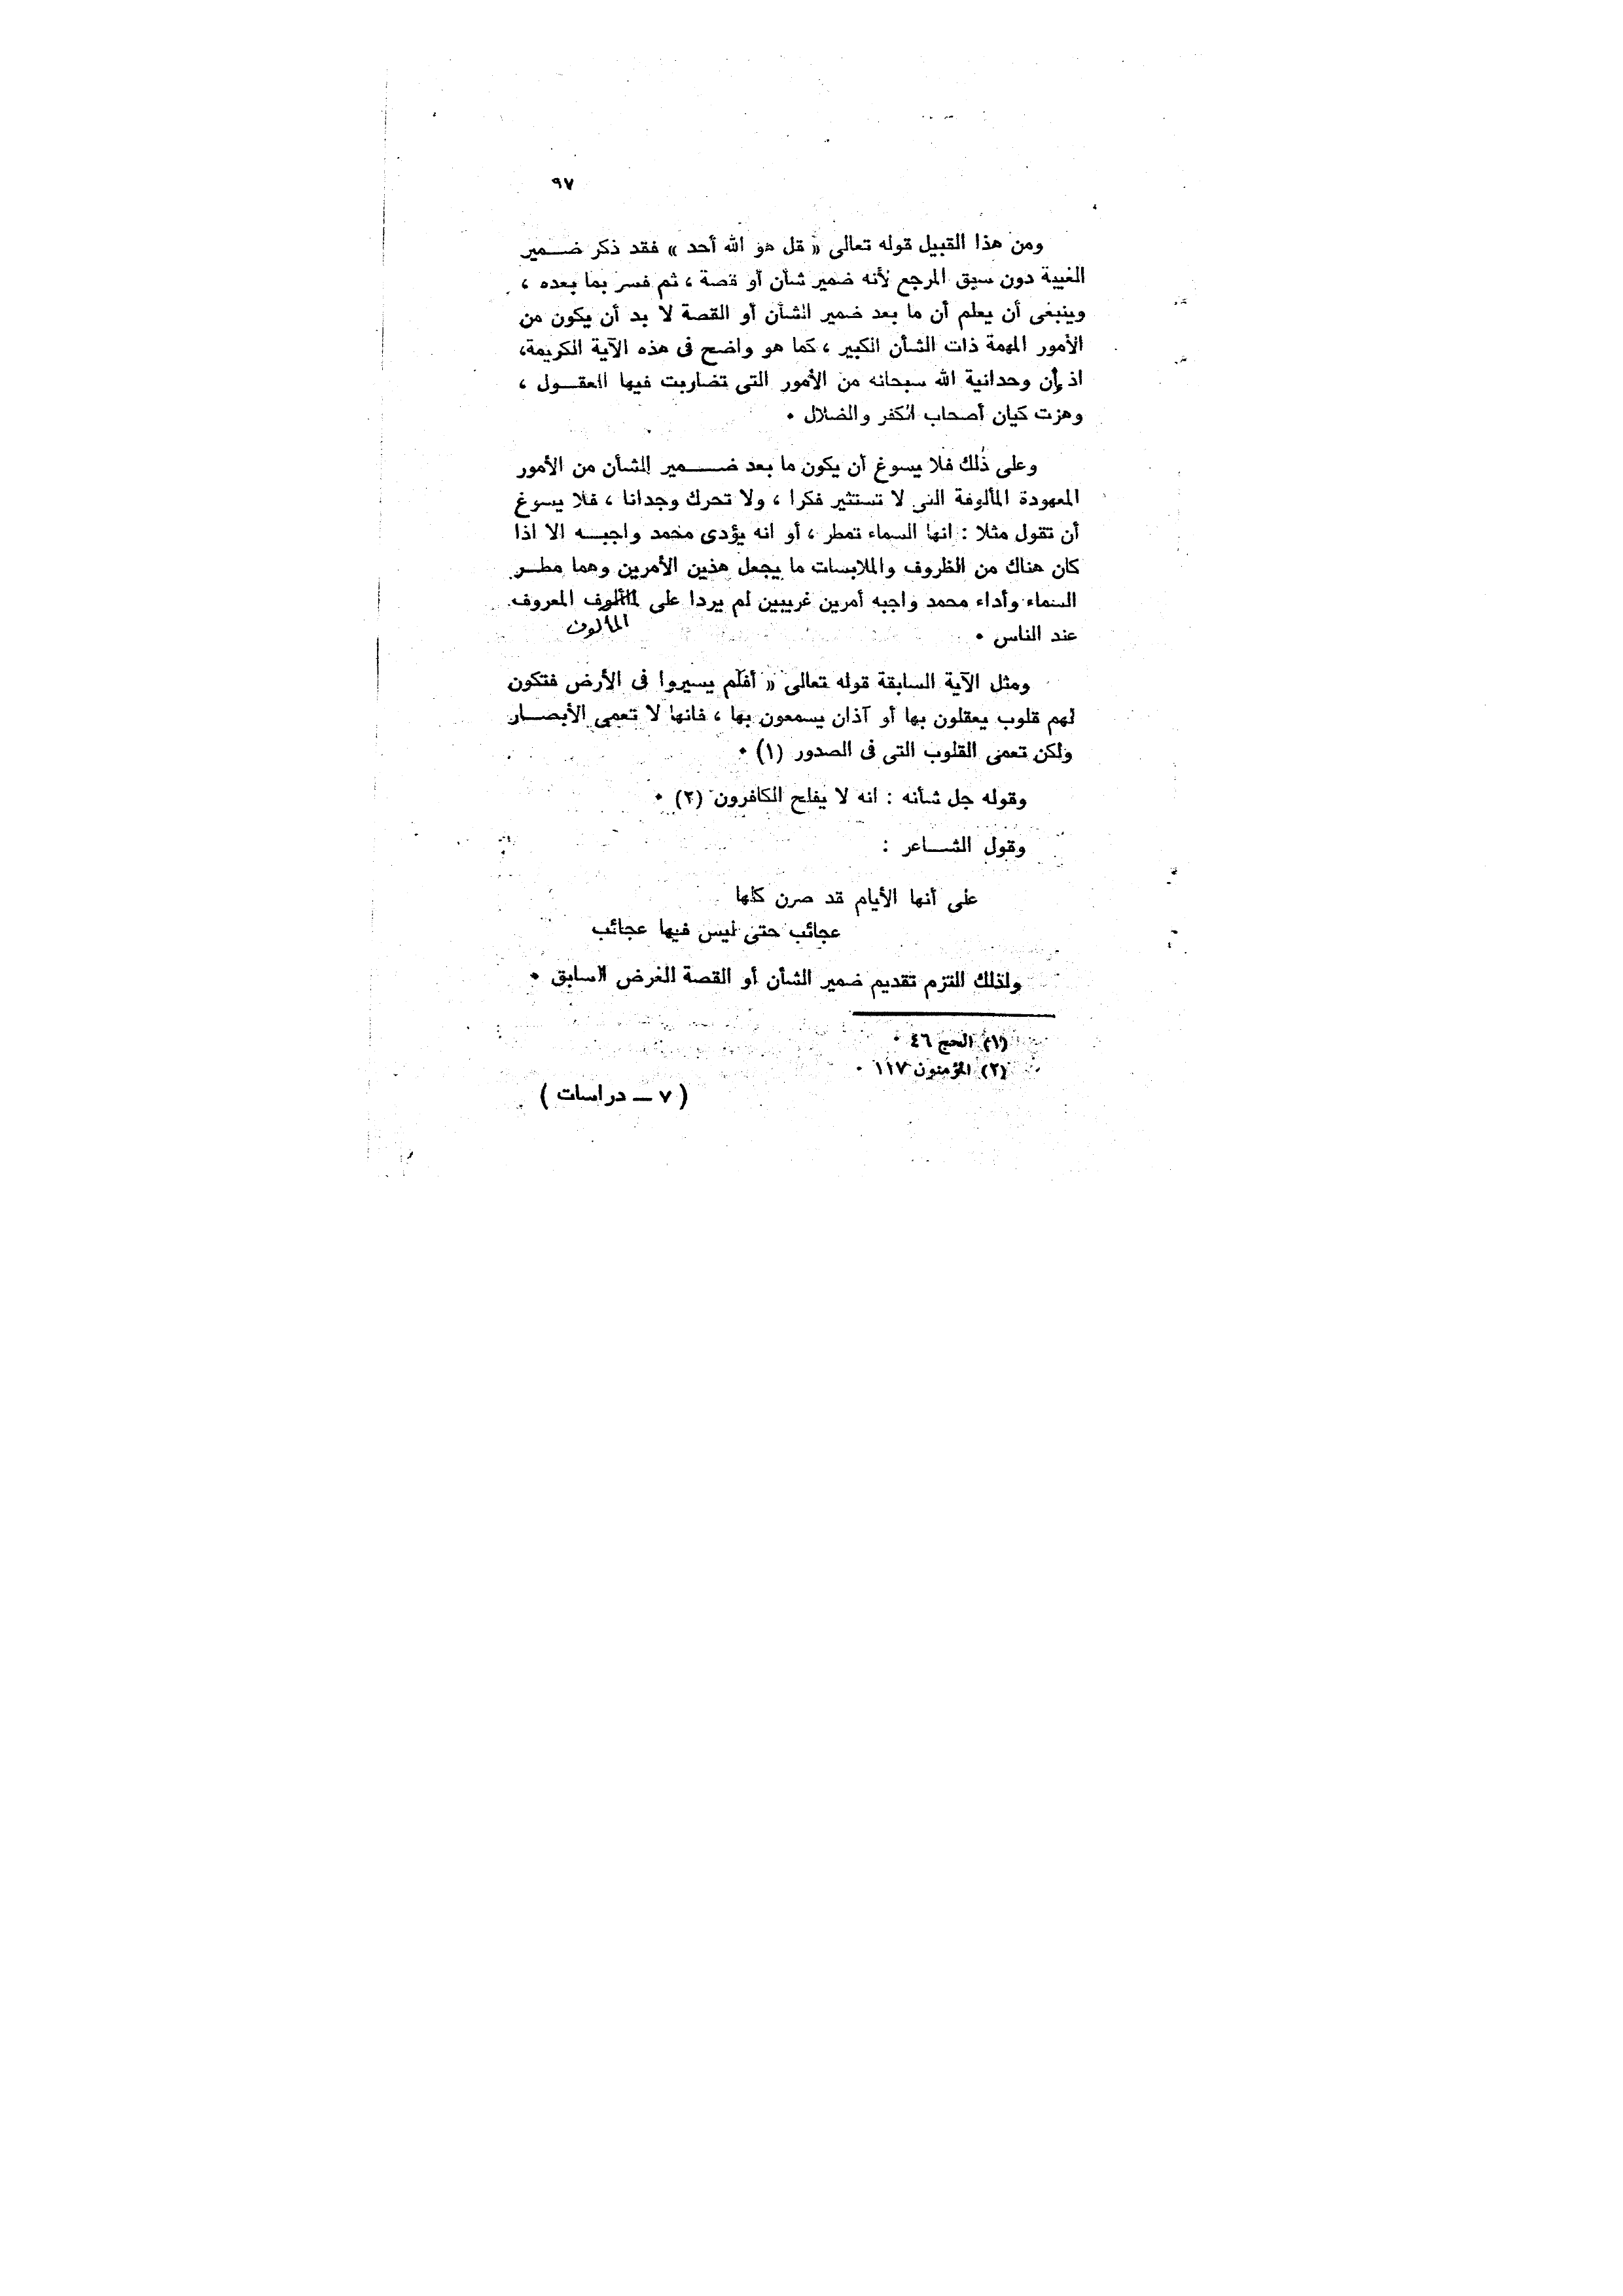 ٩٧
ومن هذا القبيل قوله تعالى « قل هو الله أحد » فقد ذكر ضـــمير
الغيبة دون سبق المرجع لأنه ضمير شأن أو قصة ، ثم فسر بما بعده ،
وينبغى أن يعلم أن ما بعد ضمير الشأن أو القصة لا بد أن يكون من
الأمور المهمة ذات الشأن الكبير ، كما هو واضح فى هذه الآية الكريمة،
اذ أن وحدانية الله سبحانه من الأمور التى تضاربت فيها العقـــول ،
وهزت كيان أصحاب الكفر والضلال ٠
وعلى ذلك فلا يسوغ أن يكون ما بعد ضـــــمير الشأن من الأمور
المعهودة المألوفة التى لا تستثير فكرا ، ولا تحرك وجدانا ، فلا يسوغ
أن تقول مثلا : انها السماء تمطر ، أو انه يؤدى محمد واجبـــه الا اذا
كان هناك من الظروف والملابسات ما يجعل هذين الأمرين وهما مطـــر
السماء وأداء محمد واجبه أمرين غريبين لم يردا على المألوف المعروف
المألوف
عند الناس ٠
ومثل الآية السابقة قوله تعالى « أفلم يسيروا فى الأرض فتكون
لهم قلوب يعقلون بها أو آذان يسمعون بها ، فانها لا تعمى الأبصـــار
ولكن تعمى القلوب التى فى الصدور (١) ٠
وقوله جل شأنه : انه لا يفلح الكافرون (٢) ٠
وقول الشـــاعر :
على أنها الأيام قد صرن كلها
عجائب حتى ليس فيها عجائب
ولذلك التزم تقديم ضمير الشأن أو القصة للغرض السابق ٠
(١) الحج ٤٦ ٠
(٢) المؤمنون ١١٧ ٠
( ٧ ــ دراسات )